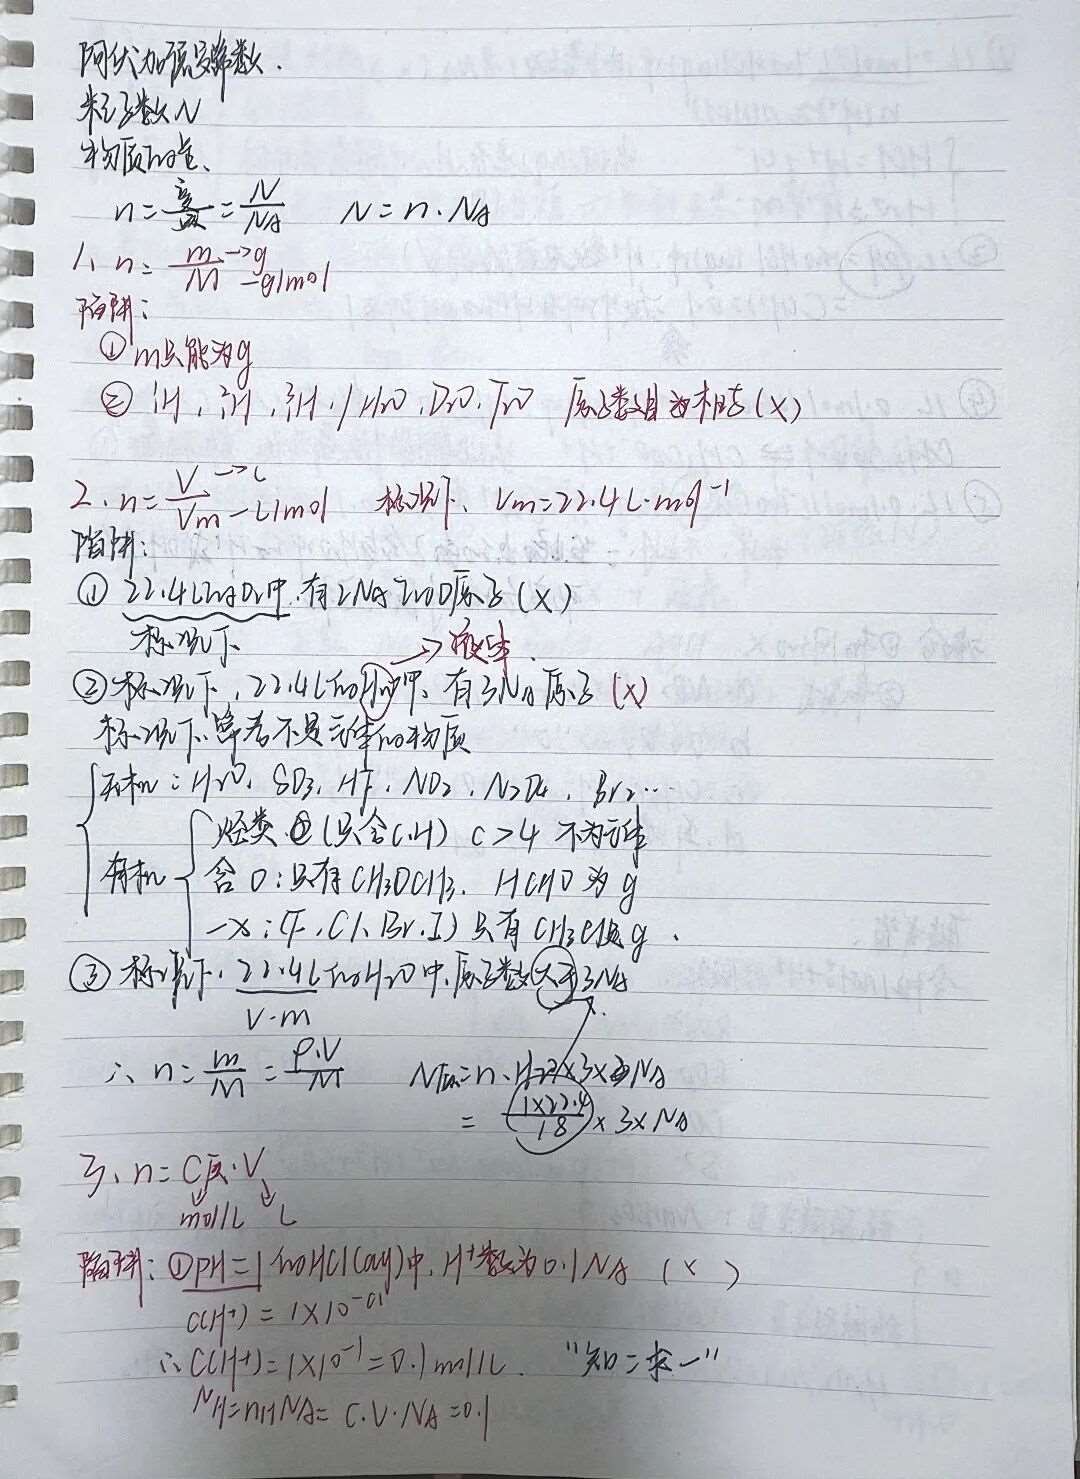 阿伏加德罗常数.
粒子数N
物质的量、
n = 变/版 = N/NA  N = n·NA
1、n = m→g / M-g/mol
陷阱:
① m只能为g
② ¹₁H, ²₁H, ³₁H. / H₂O, D₂O, T₂O 原子数目为相等(X)
2. n = V→L / Vm-L/mol  标况下、Vm = 22.4 L·mol⁻¹
陷阱:
① 22.4L的O₂中.有2NA个的O原子(X)
标况下 → 液体.
② 标况下, 22.4L的H₂O中、有3NA原子(X)
标况下、常考不是气体的物质
无机: H₂O, SO₃, HF, NO₂, N₂O₄, Br₂...
烃类 (只含C.H) C>4 不为气体
有机 含O:只有CH₃OCH₃. HCHO为g
-X:(F, Cl, Br. I) 只有CH₃Cl是g.
③ 标况下. 22.4L的H₂O中.原子数大于3NA
V·m
∴ n = m/M = ρ·V/M  N原=n.
= 1×22.4/18 × 3×NA
3、n = C质·V
mol/L L
陷阱: ① pH=1的HCl(aq)中. H⁺数为0.1NA (X)
C(H⁺) = 1×10⁻⁰¹
∴ C(H⁺) = 1×10⁻¹ = 0.1mol/L. "知二求一"
NH=nH NA= C.V.NA =0.1